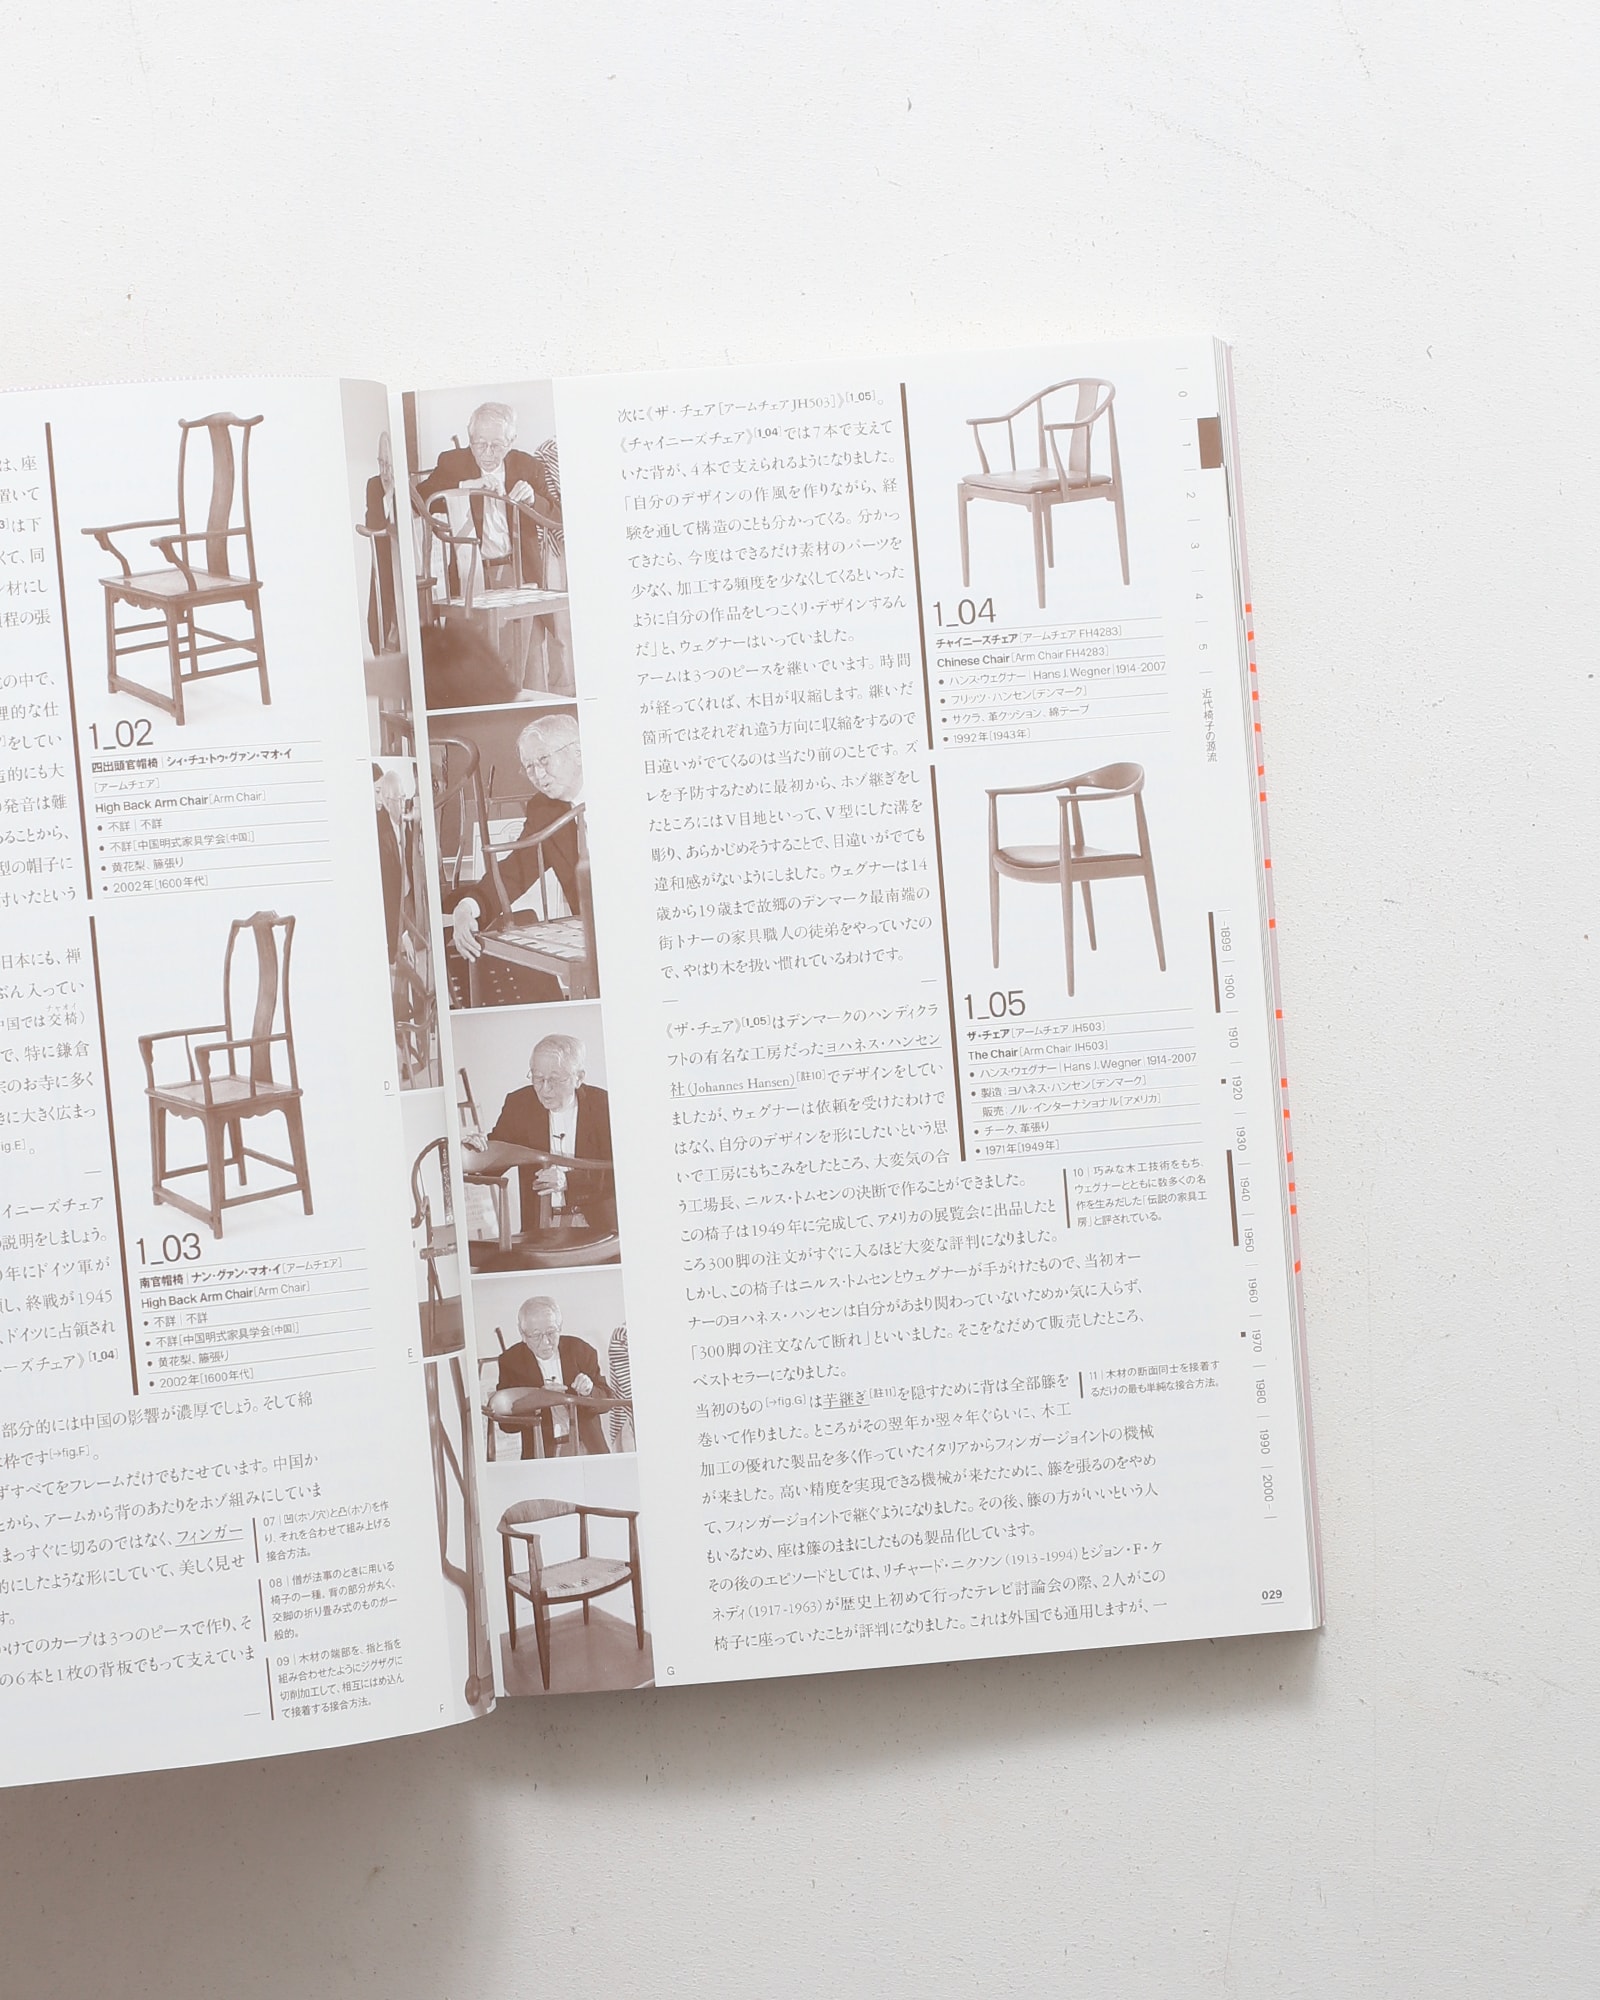 は、座
置いて
は下
くて、同
ン材にし
程の張
の中で、
理的な仕
をしてい
造的にも大
発音は難
ることから、
型の帽子に
付いたという
日本にも、禅
ぶん入ってい
中国では交椅)
で、特に鎌倉
宗のお寺に多く
きに大きく広まっ
fig.E]。
イニーズチェア
の説明をしましょう。
年にドイツ軍が
し、終戦が1945
、ドイツに占領され
ーズチェア》[1_04]
部分的には中国の影響が濃厚でしょう。そして綿
枠です[→fig.F]。
ずすべてをフレームだけでもたせています。中国か
とから、アームから背のあたりをホゾ組みにしていま
まっすぐに切るのではなく、フィンガー
的にしたような形にしていて、美しく見せ
す。
かけてのカーブは3つのピースで作り、そ
の6本と1枚の背板でもって支えていま
1_02
四出頭官帽椅|シィ・チュ・トゥ・グァン・マオ・イ
[アームチェア]
High Back Arm Chair[Arm Chair]
● 不詳|不詳
● 不詳[中国明式家具学会(中国)]
● 黄花梨、籐張り
● 2002年[1600年代]
1_03
南官帽椅|ナン・グァン・マオ・イ[アームチェア]
High Back Arm Chair[Arm Chair]
● 不詳|不詳
● 不詳[中国明式家具学会(中国)]
● 黄花梨、籐張り
● 2002年[1600年代]
07|凹(ホゾ穴)と凸(ホゾ)を作
り、それを合わせて組み上げる
接合方法。
08|僧が法事のときに用いる
椅子の一種。背の部分が丸く、
交脚の折り畳み式のものが一
般的。
09|木材の端部を、指と指を
組み合わせたようにジグザグに
切削加工して、相互にはめ込ん
で接着する接合方法。
D
E
F
次に《ザ・チェア[アームチェアJH503]》[1_05]。
《チャイニーズチェア》[1_04]では7本で支えて
いた背が、4本で支えられるようになりました。
「自分のデザインの作風を作りながら、経
験を通して構造のことも分かってくる。分かっ
てきたら、今度はできるだけ素材のパーツを
少なく、加工する頻度を少なくしてくるといった
ように自分の作品をしつこくリ・デザインするん
だ」と、ウェグナーはいっていました。
アームは3つのピースを継いでいます。時間
が経ってくれば、木目が収縮します。継いだ
箇所ではそれぞれ違う方向に収縮をするので
目違いがでてくるのは当たり前のことです。ズ
レを予防するために最初から、ホゾ継ぎをし
たところにはV目地といって、V型にした溝を
彫り、あらかじめそうすることで、目違いがでても
違和感がないようにしました。ウェグナーは14
歳から19歳まで故郷のデンマーク最南端の
街トナーの家具職人の徒弟をやっていたの
で、やはり木を扱い慣れているわけです。
《ザ・チェア》[1_05]はデンマークのハンディクラ
フトの有名な工房だったヨハネス・ハンセン
社(Johannes Hansen)[註10]でデザインをしてい
ましたが、ウェグナーは依頼を受けたわけで
はなく、自分のデザインを形にしたいという思
いで工房にもちこみをしたところ、大変気の合
う工場長、ニルス・トムセンの決断で作ることができました。
この椅子は1949年に完成して、アメリカの展覧会に出品したと
ころ300脚の注文がすぐに入るほど大変な評判になりました。
しかし、この椅子はニルス・トムセンとウェグナーが手がけたもので、当初オー
ナーのヨハネス・ハンセンは自分があまり関わっていないためか気に入らず、
「300脚の注文なんて断れ」といいました。そこをなだめて販売したところ、
ベストセラーになりました。
当初のもの[→fig.G]は芋継ぎ[註11]を隠すために背は全部籐を
巻いて作りました。ところがその翌年か翌々年ぐらいに、木工
加工の優れた製品を多く作っていたイタリアからフィンガージョイントの機械
が来ました。高い精度を実現できる機械が来たために、籐を張るのをやめ
て、フィンガージョイントで継ぐようになりました。その後、籐の方がいいという人
もいるため、座は籐のままにしたものも製品化しています。
その後のエピソードとしては、リチャード・ニクソン(1913-1994)とジョン・F・ケ
ネディ(1917-1963)が歴史上初めて行ったテレビ討論会の際、2人がこの
椅子に座っていたことが評判になりました。これは外国でも通用しますが、一
G
1_04
チャイニーズチェア[アームチェア FH4283]
Chinese Chair[Arm Chair FH4283]
● ハンス・ウェグナー|Hans J. Wegner|1914-2007
● フリッツ・ハンセン[デンマーク]
● サクラ、革クッション、綿テープ
● 1992年[1943年]
1_05
ザ・チェア[アームチェア JH503]
The Chair[Arm Chair JH503]
● ハンス・ウェグナー|Hans J. Wegner|1914-2007
● 製造:ヨハネス・ハンセン[デンマーク]
販売:ノル・インターナショナル[アメリカ]
● チーク、革張り
● 1971年[1949年]
10|巧みな木工技術をもち、
ウェグナーとともに数多くの名
作を生みだした「伝説の家具工
房」と評されている。
11|木材の断面同士を接着す
るだけの最も単純な接合方法。
0 | 1 | 2 | 3 | 4 | 5 | 近代椅子の源流
-1899 | 1900 | 1910 | 1920 | 1930 | 1940 | 1950 | 1960 | 1970 | 1980 | 1990 | 2000-
029